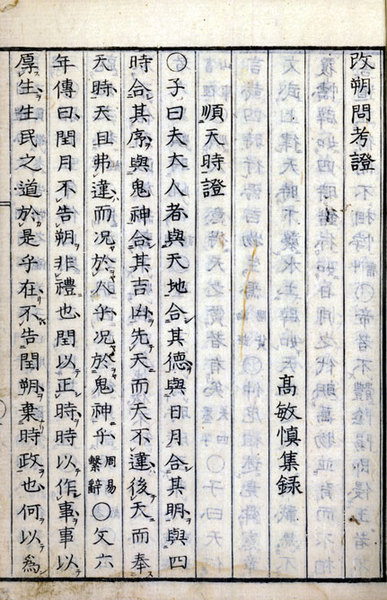 改朔問考證
高敏慎集録
順天時證
〇子曰夫大人者與天地合其德與日月合其明與四
時合其序與鬼神合其吉凶先天而天不違後天而奉
天時天且弗違而况於人乎况於鬼神乎周易繫辭〇文六
年傳曰閏月不告朔非禮也閏以正時時以作事事以
厚生生民之道於是乎在不告閏朔棄時政也何以爲